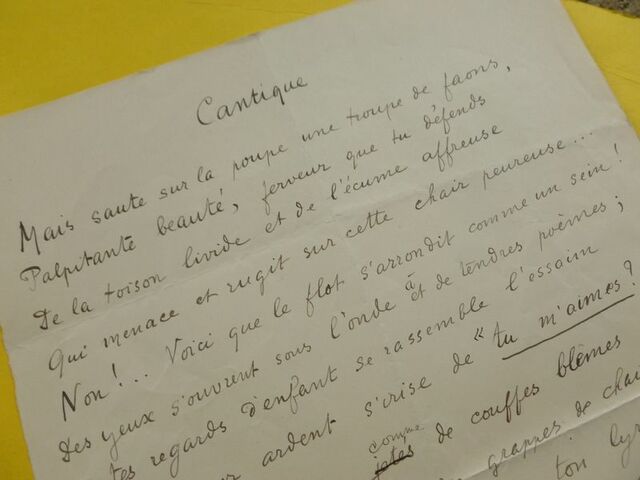 Cantique
Mais saute sur la poupe une troupe de faons,
Palpitante beauté, ferveur que tu défends
De la toison livide et de l'écume affreuse
Qui menace et rugit sur cette chair peureuse...
Non !... Voici que le flot s'arrondit comme un sein !
Des yeux s'ouvrent sous l'onde à et de tendres poèmes ;
tes regards d'enfant se rassemble l'essaim
ardent s'irise de « tu m'aimes ?
comme
jetés de couffes blêmes
grappes de chai
ton lyr